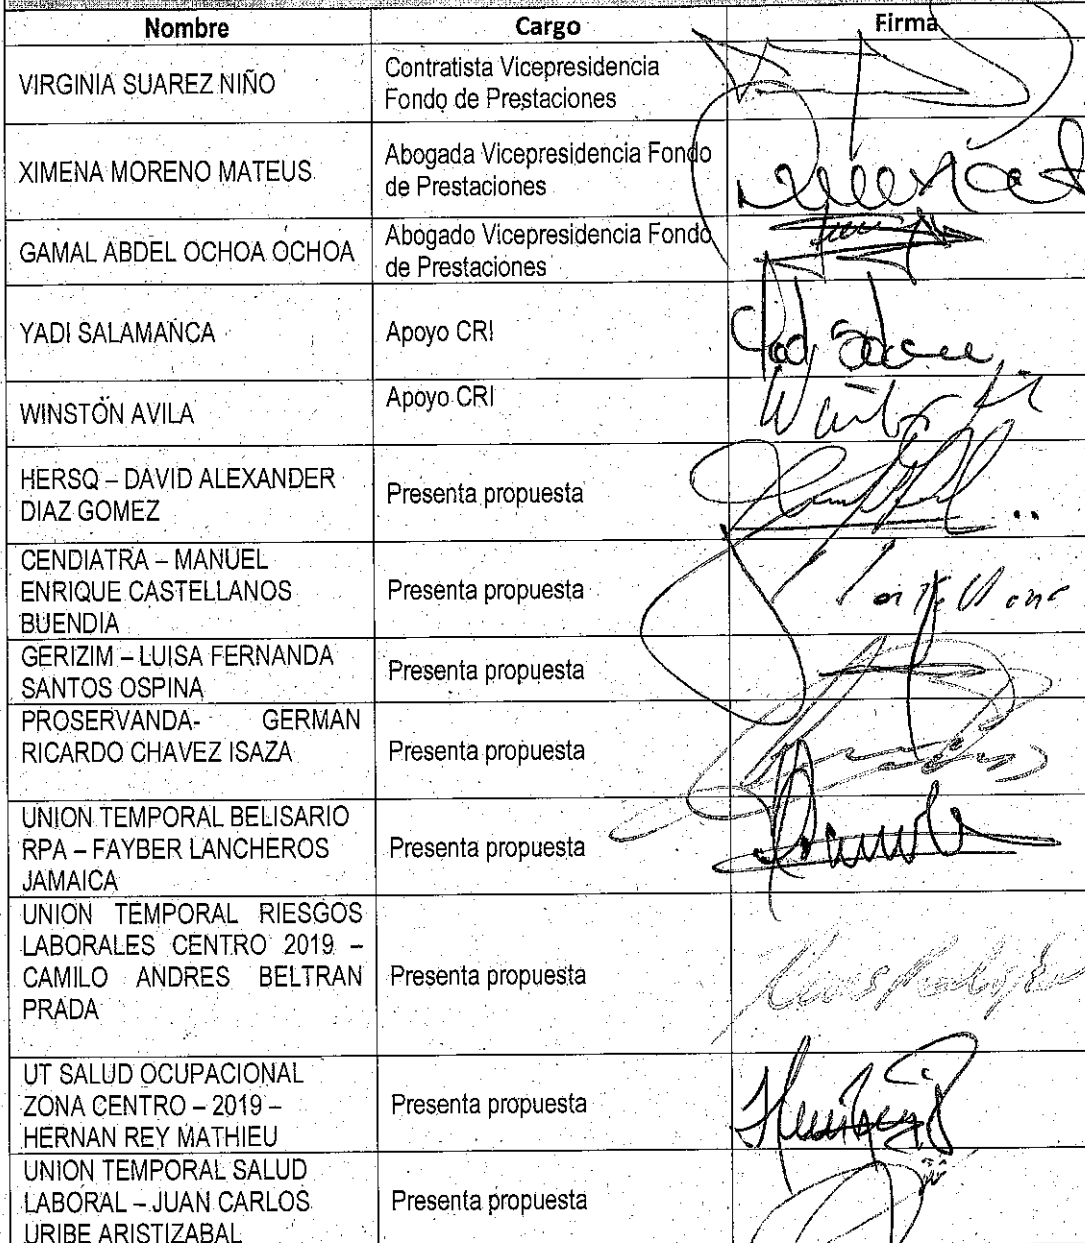 Nombre Cargo Firma
VIRGINIA SUAREZ NIÑO
Contratista Vicepresidencia
Fondo de Prestaciones
XIMENA MORENO MATEUS
Abogada Vicepresidencia Fondo
de Prestaciones
GAMAL ABDEL OCHOA OCHOA
Abogado Vicepresidencia Fondo
de Prestaciones
YADI SALAMANCA
Apoyo CRI
WINSTON AVILA
Apoyo CRI
HERSQ – DAVID ALEXANDER
DIAZ GOMEZ
Presenta propuesta
CENDIATRA – MANUEL
ENRIQUE CASTELLANOS
BUENDIA
Presenta propuesta
GERIZIM – LUISA FERNANDA
SANTOS OSPINA
Presenta propuesta
PROSERVANDA- GERMAN
RICARDO CHAVEZ ISAZA
Presenta propuesta
UNION TEMPORAL BELISARIO
RPA – FAYBER LANCHEROS
JAMAICA
Presenta propuesta
UNION TEMPORAL RIESGOS
LABORALES CENTRO 2019 –
CAMILO ANDRES BELTRAN
PRADA
Presenta propuesta
UT SALUD OCUPACIONAL
ZONA CENTRO – 2019 –
HERNAN REY MATHIEU
Presenta propuesta
UNION TEMPORAL SALUD
LABORAL – JUAN CARLOS
URIBE ARISTIZABAL
Presenta propuesta